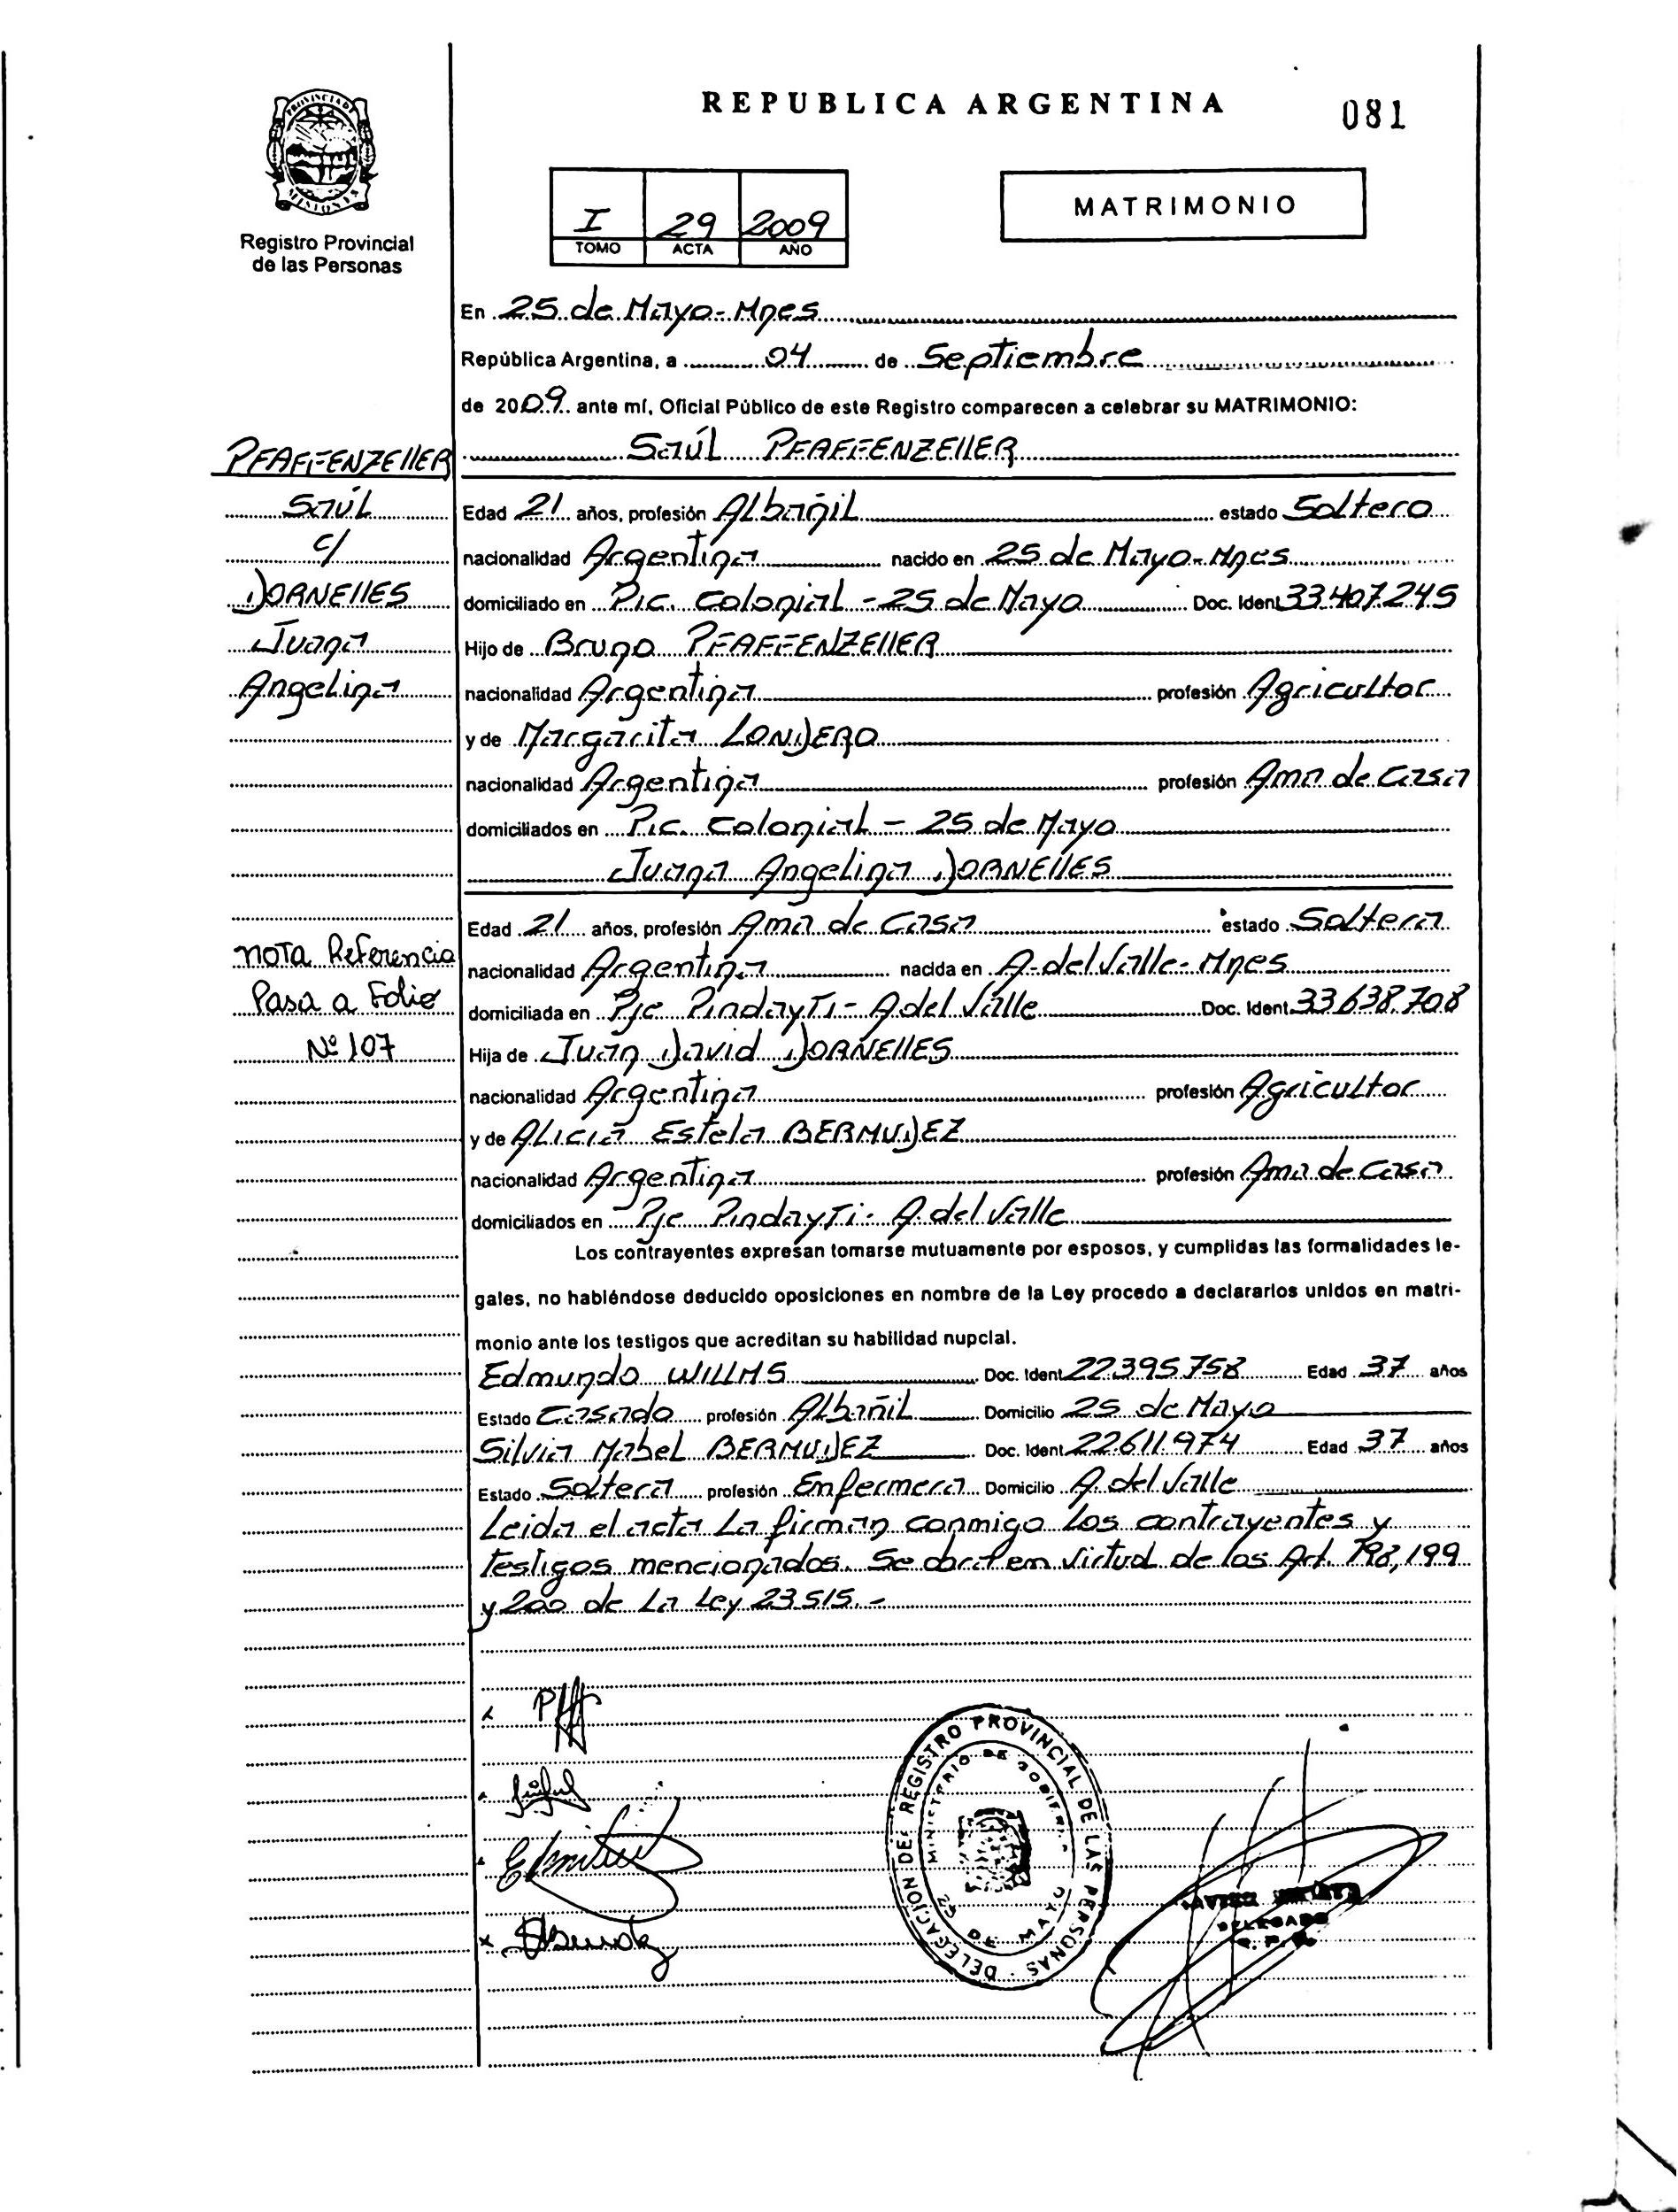 REPUBLICA ARGENTINA
081
PROVINCIA DE
MISIONES
Registro Provincial
de las Personas
I 29 2009
TOMO ACTA AÑO
MATRIMONIO
En 25 de Mayo-Mnes
República Argentina, a 04 de Septiembre
de 2009 ante mí, Oficial Público de este Registro comparecen a celebrar su MATRIMONIO:
Saúl PFAFFENZEllER
Edad 21 años, profesión Albañil estado Soltero
nacionalidad Argentina nacido en 25 de Mayo-Mnes
domiciliado en Pic. Colonial - 25 de Mayo Doc. Ident 33.407.245
Hijo de Bruno PFAFFENZEllER
nacionalidad Argentina profesión Agricultor
y de Margarita LONDERO
nacionalidad Argentina profesión Ama de Casa
domiciliados en Pic. Colonial - 25 de Mayo
Juana Angelina DORNEllES
Edad 21 años, profesión Ama de Casa estado Soltera
nacionalidad Argentina nacida en A. del Valle-Mnes
domiciliada en Pje PindayTi - A del Valle Doc. Ident 33.638.708
Hija de Juan David DORNEllES
nacionalidad Argentina profesión Agricultor
y de Alicia Estela BERMUDEZ
nacionalidad Argentina profesión Ama de Casa
domiciliados en Pje PindayTi - A. del Valle
Los contrayentes expresan tomarse mutuamente por esposos, y cumplidas las formalidades le-
gales, no habiéndose deducido oposiciones en nombre de la Ley procedo a declararlos unidos en matri-
monio ante los testigos que acreditan su habilidad nupcial.
Edmundo WILLMS Doc. Ident 22.395.758 Edad 37 años
Estado Casado profesión Albañil Domicilio 25 de Mayo
Silvia Mabel BERMUDEZ Doc. Ident 22.611.974 Edad 37 años
Estado Soltera profesión Enfermera Domicilio A. del Valle
Leida el acta La firman conmigo Los contrayentes y
Testigos mencionados. Se en Virtud de los Art. 198, 199
y 200 de La Ley 23.515.-
PFAFFENZEllER
Saúl
c/
DORNEllES
Juana
Angelina
NOTA Referencia
Pasa a Folio
Nº 107
DELEGACION DEL REGISTRO PROVINCIAL DE LAS PERSONAS
MINISTERIO DE GOBIERNO
25 DE MAYO
DELEGADO